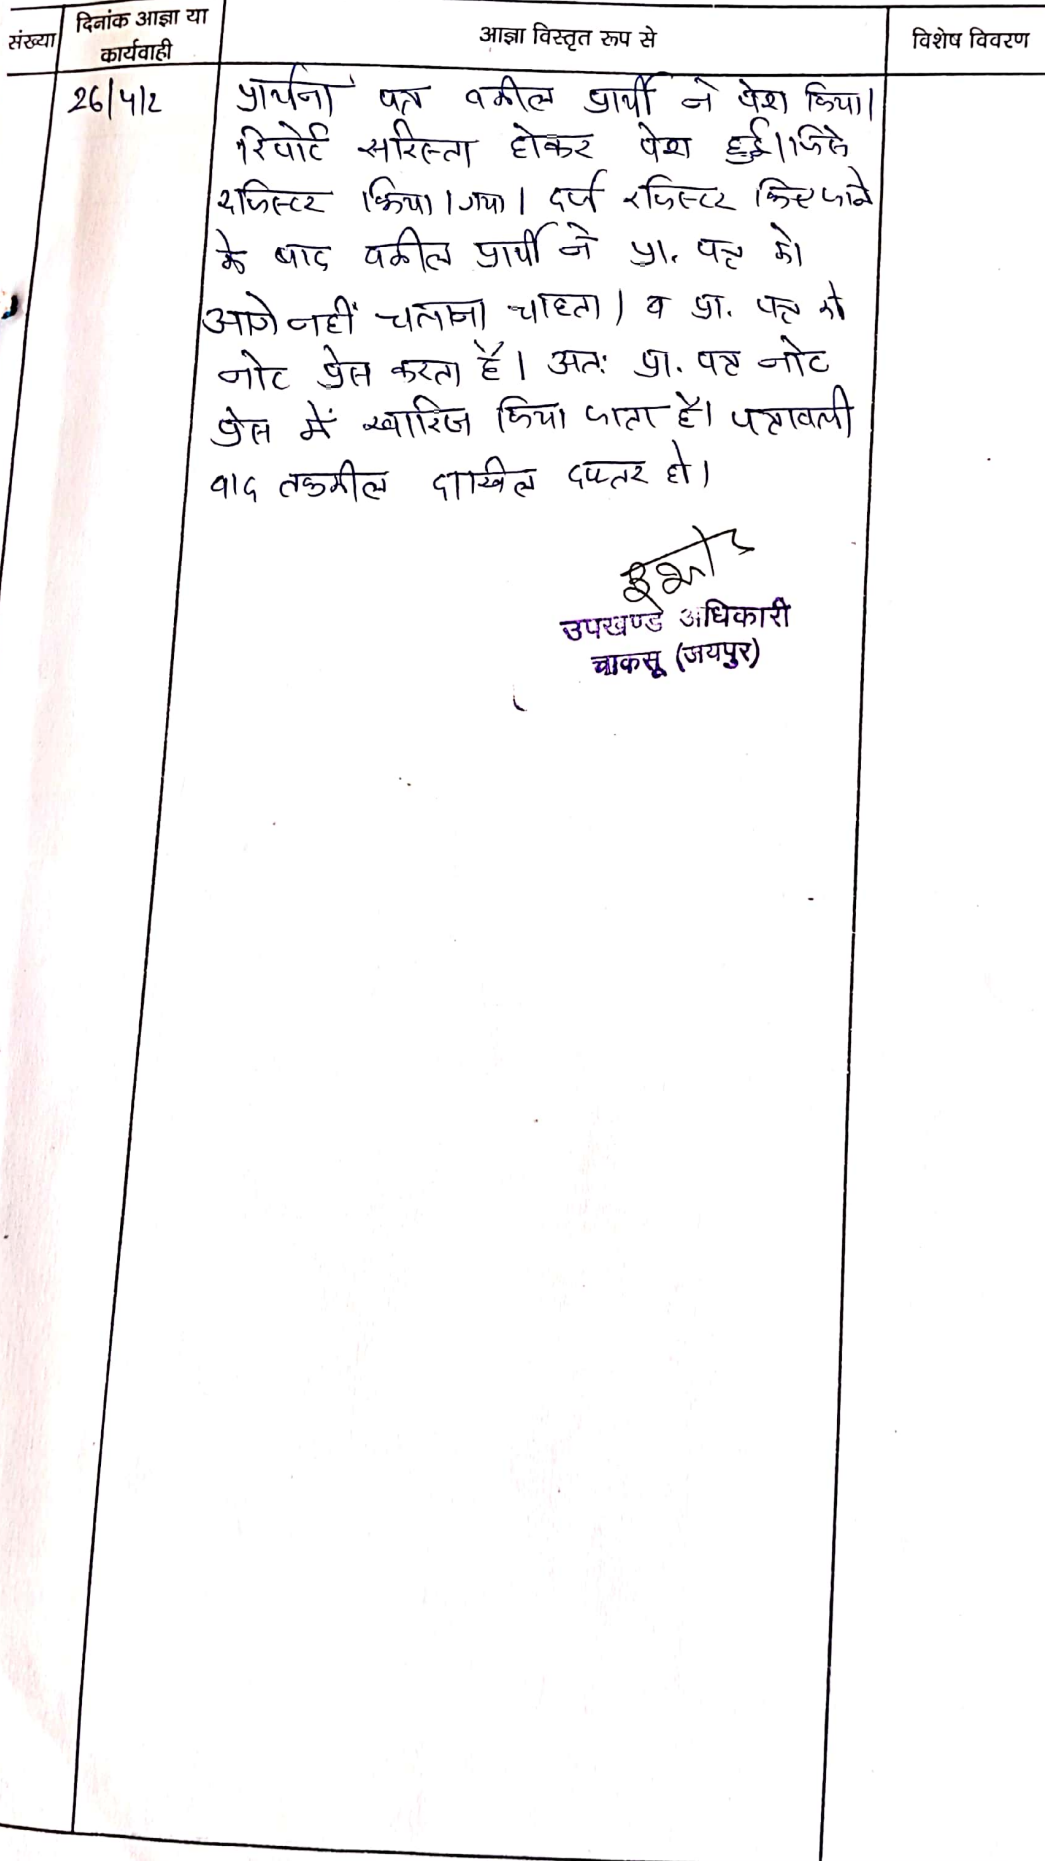 संख्या
दिनांक आज्ञा या
कार्यवाही
आज्ञा विस्तृत रूप से
विशेष विवरण
26/4/2
प्रार्थना पत्र वकील प्रार्थी ने पेश किया।
रिपोर्ट सरिस्ता होकर पेश हुई। जिसे
रजिस्टर किया गया। दर्ज रजिस्टर किए जाने
के बाद वकील प्रार्थी ने प्रा. पत्र को
आगे नहीं चलाना चाहता। व प्रा. पत्र को
नोट प्रेस करता है। अतः प्रा. पत्र नोट
प्रेस में खारिज किया जाता है। पत्रावली
वाद तकमील दाखिल दफ्तर हो।
उपखण्ड अधिकारी
चाकसू (जयपुर)